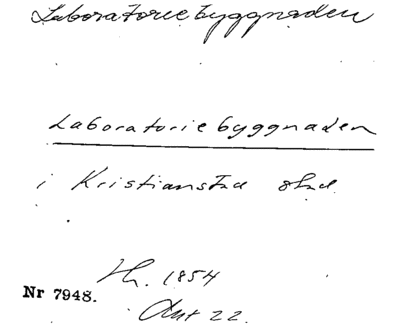 Laboratoriebyggnaden
Laboratoriebyggnaden
i Kristianstad stad
Hr. 1854
Nr 7948.
Art 22.